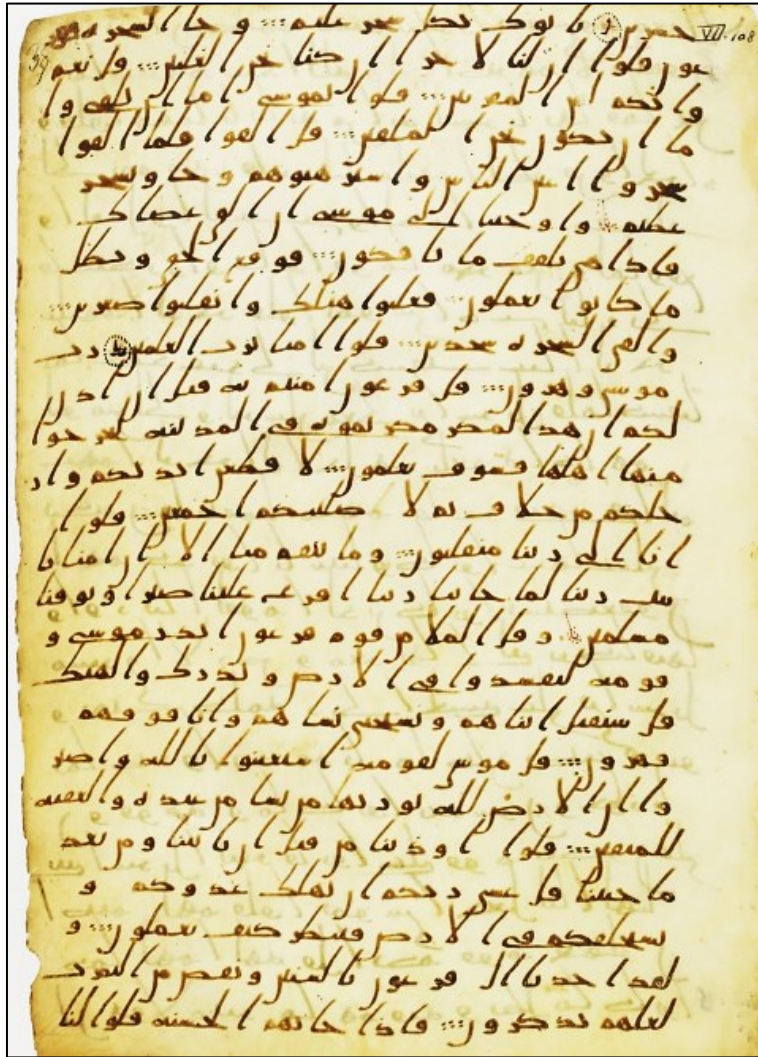 حشرين ياتوك بكل سحر عليم وجا السحره فر VII.108
عون قلوا ان لنا لاجرا ان كنا نحن الغلبين قل نعم
وانكم لمن المقربين قلوا يموسى اما ان تلقي وا
ما ان نكون نحن الملقين قل القوا فلما القوا
سحروا اعين الناس واسترهبوهم وجاو بسحر
عظيم واوحينا الى موسى ان الق عصاك
فاذا هي تلقف ما يافكون فوقع الحق وبطل
ما كانوا يعملون فغلبوا هنلك وانقلبوا صغرين
والقي السحره سجدين قلوا امنا برب العلمين رب
موسى وهرون قل فرعون امنتم به قبل ان اذن
لكم ان هذا لمكر مكرتموه في المدينه لتخرجوا
منها اهلها فسوف تعلمون لاقطعن ايديكم وار
جلكم من خلاف ثم لاصلبنكم اجمعين قلوا
انا الى ربنا منقلبون وما تنقم منا الا ان امنا با
يت ربنا لما جاتنا ربنا افرغ علينا صبرا وتوفنا
مسلمين وقل الملا من قوم فرعون اتذر موسى و
قومه ليفسدوا في الارض ويذرك والهتك
قل سنقتل ابناهم ونستحيي نساهم وانا فوقهم
قهرون قل موسى لقومه استعينوا بالله واصبر
وا ان الارض لله يورثها من يشا من عبده والعقبه
للمتقين قلوا اوذينا من قبل ان تاتينا ومن بعد
ما جيتنا قل عسى ربكم ان يهلك عدوكم و
يستخلفكم في الارض فينظر كيف تعملون و
لقد اخذنا ال فرعون بالسنين ونقص من الثمرت
لعلهم يذكرون فاذا جاتهم الحسنه قلوا لنا